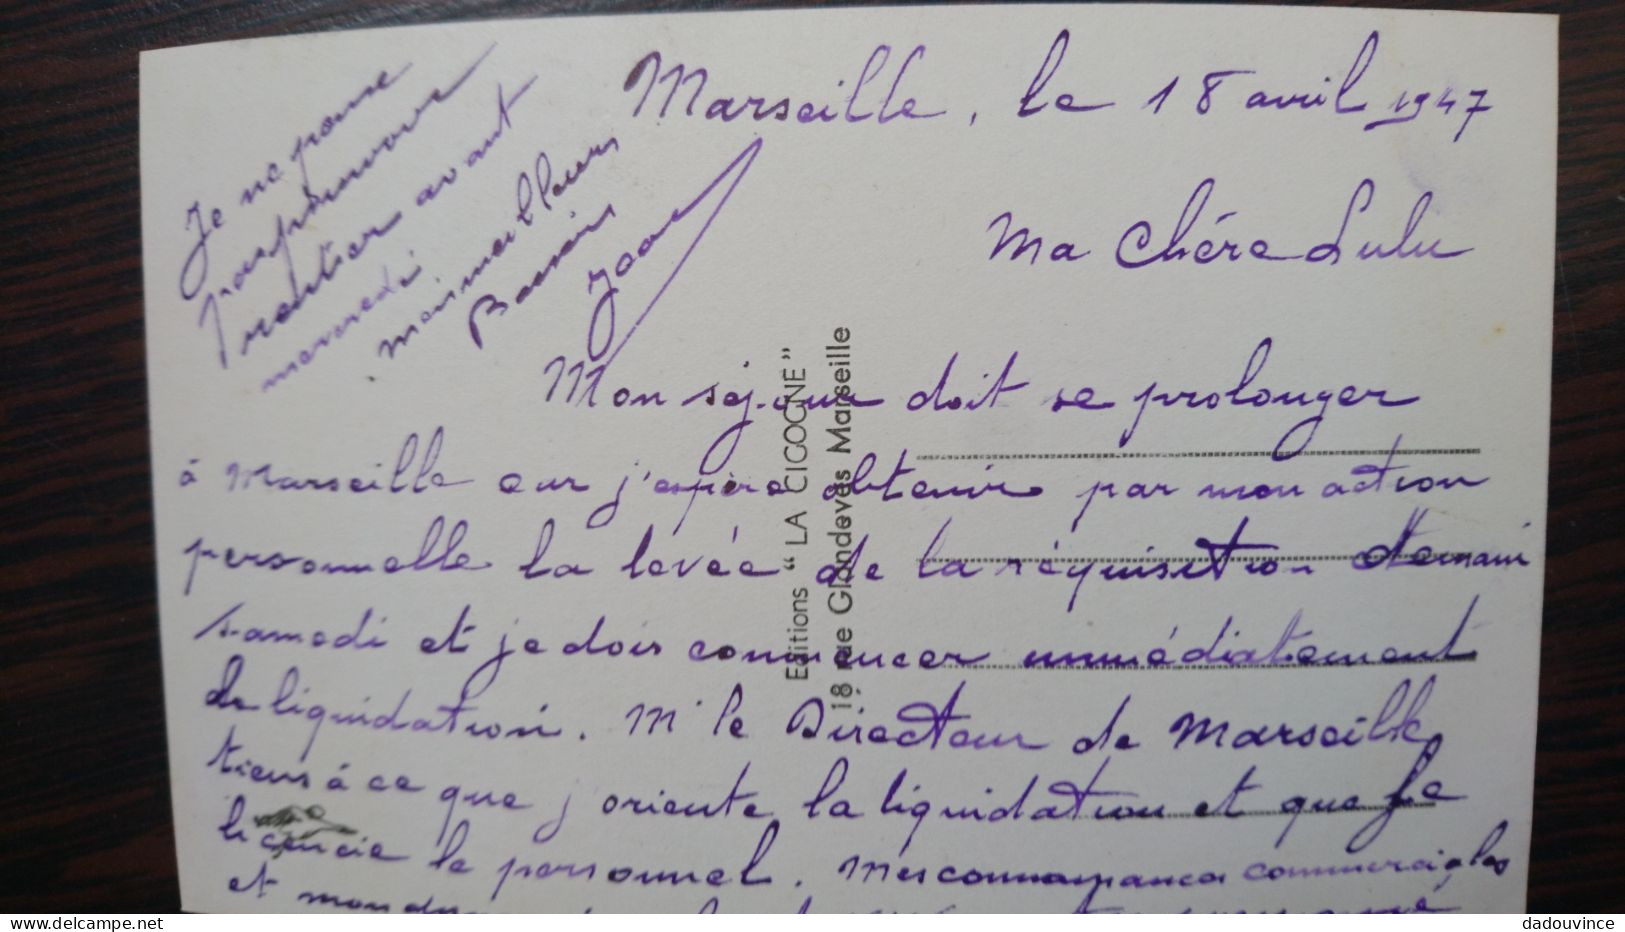 Marseille, le 18 avril 1947
Ma Chère Lulu
Mon séjour doit se prolonger
à Marseille car j'espère obtenir par mon action
personnelle la levée de la réquisition demain
samedi et je dois commencer immédiatement
la liquidation. Mr le Directeur de Marseille
tiens à ce que j'oriente la liquidation et que je
licencie le personnel. Mes connaissances commerciales
et mon
Je ne pense
pas pouvoir
rentrer avant
mercredi
mes meilleurs
Baisers
Editions "LA CIGOGNE"
18, Rue Glandevès Marseille
dadouvince